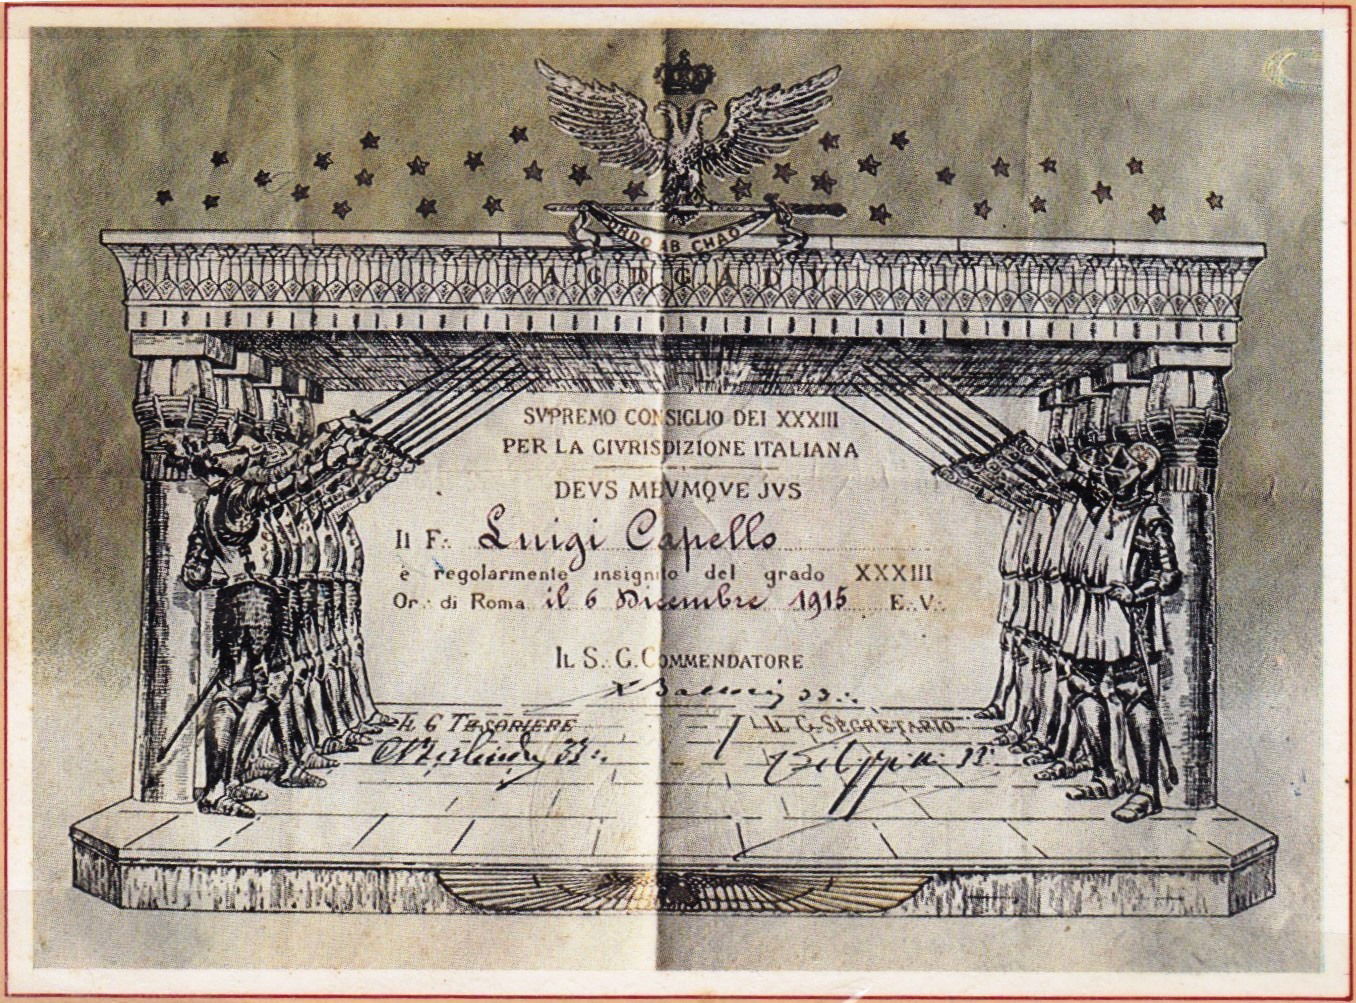 ORDO AB CHAO
A G D G A D V
SVPREMO CONSIGLIO DEI XXXIII
PER LA GIVRISDIZIONE ITALIANA
DEVS MEVMQVE JVS
Il F∴ Luigi Capello
è regolarmente insignito del grado XXXIII
Or∴ di Roma il 6 Dicembre 1915 E∴V∴
IL S∴ G. COMMENDATORE
33∴
IL G TESORIERE
33∴
IL G. SEGRETARIO
33∴